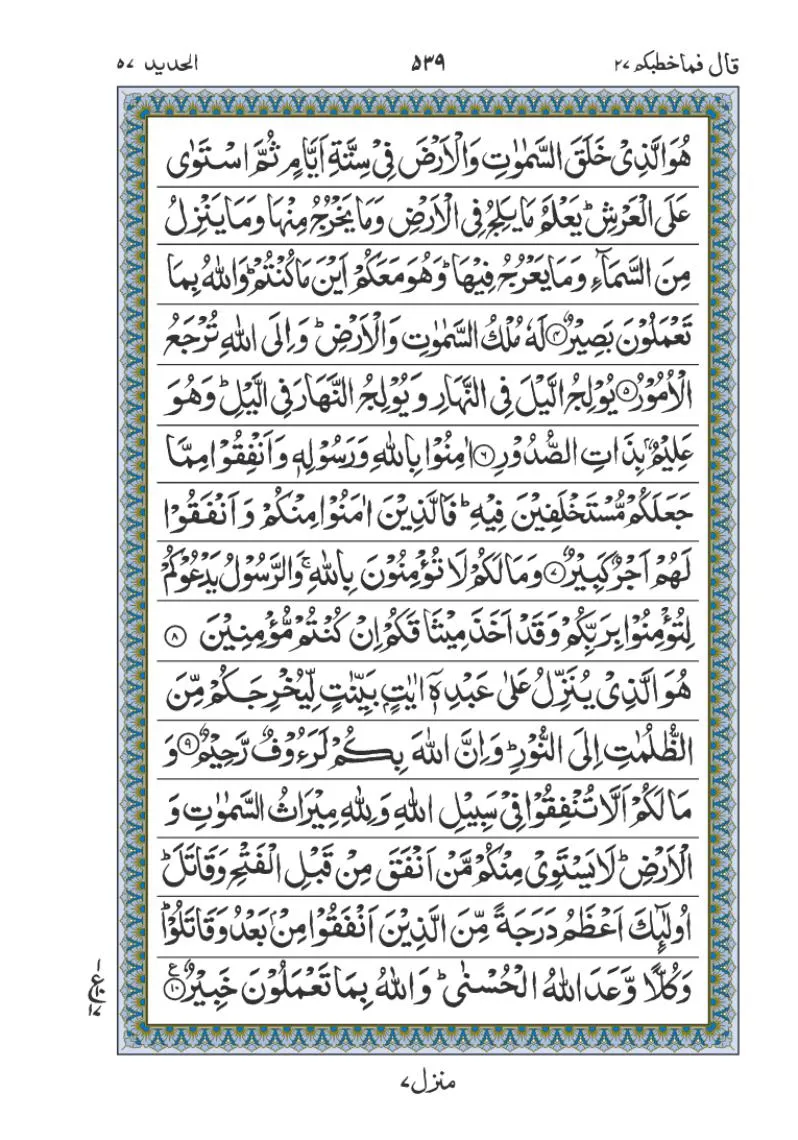 قال فما خطبكم ٢٧ ٥٣٩ الحديد ٥٧
هُوَ الَّذِىْ خَلَقَ السَّمٰوٰتِ وَالْاَرْضَ فِىْ سِتَّةِ اَيَّامٍ ثُمَّ اسْتَوٰى
عَلَى الْعَرْشِؕ يَعْلَمُ مَا يَلِجُ فِى الْاَرْضِ وَمَا يَخْرُجُ مِنْهَا وَمَا يَنْزِلُ
مِنَ السَّمَآءِ وَمَا يَعْرُجُ فِيْهَاؕ وَهُوَ مَعَكُمْ اَيْنَ مَا كُنْتُمْؕ وَاللّٰهُ بِمَا
تَعْمَلُوْنَ بَصِيْرٌ ۝۴ لَهٗ مُلْكُ السَّمٰوٰتِ وَالْاَرْضِؕ وَاِلَى اللّٰهِ تُرْجَعُ
الْاُمُوْرُ ۝۵ يُوْلِجُ الَّيْلَ فِى النَّهَارِ وَيُوْلِجُ النَّهَارَ فِى الَّيْلِؕ وَهُوَ
عَلِيْمٌۢ بِذَاتِ الصُّدُوْرِ ۝۶ اٰمِنُوْا بِاللّٰهِ وَرَسُوْلِهٖ وَاَنْفِقُوْا مِمَّا
جَعَلَكُمْ مُّسْتَخْلَفِيْنَ فِيْهِؕ فَالَّذِيْنَ اٰمَنُوْا مِنْكُمْ وَاَنْفَقُوْا
لَهُمْ اَجْرٌ كَبِيْرٌ ۝۷ وَمَا لَكُمْ لَا تُؤْمِنُوْنَ بِاللّٰهِۚ وَالرَّسُوْلُ يَدْعُوْكُمْ
لِتُؤْمِنُوْا بِرَبِّكُمْ وَقَدْ اَخَذَ مِيْثَاقَكُمْ اِنْ كُنْتُمْ مُّؤْمِنِيْنَ ۝۸
هُوَ الَّذِىْ يُنَزِّلُ عَلٰى عَبْدِهٖۤ اٰيٰتٍۭ بَيِّنٰتٍ لِّيُخْرِجَكُمْ مِّنَ
الظُّلُمٰتِ اِلَى النُّوْرِؕ وَاِنَّ اللّٰهَ بِكُمْ لَرَءُوْفٌ رَّحِيْمٌ ۝۹ وَ
مَا لَكُمْ اَلَّا تُنْفِقُوْا فِىْ سَبِيْلِ اللّٰهِ وَلِلّٰهِ مِيْرَاثُ السَّمٰوٰتِ وَ
الْاَرْضِؕ لَا يَسْتَوِىْ مِنْكُمْ مَّنْ اَنْفَقَ مِنْ قَبْلِ الْفَتْحِ وَقَاتَلَؕ
اُولٰٓئِكَ اَعْظَمُ دَرَجَةً مِّنَ الَّذِيْنَ اَنْفَقُوْا مِنْۢ بَعْدُ وَقَاتَلُوْاؕ
وَكُلًّا وَّعَدَ اللّٰهُ الْحُسْنٰىؕ وَاللّٰهُ بِمَا تَعْمَلُوْنَ خَبِيْرٌ ۝۱۰
منزل ۷